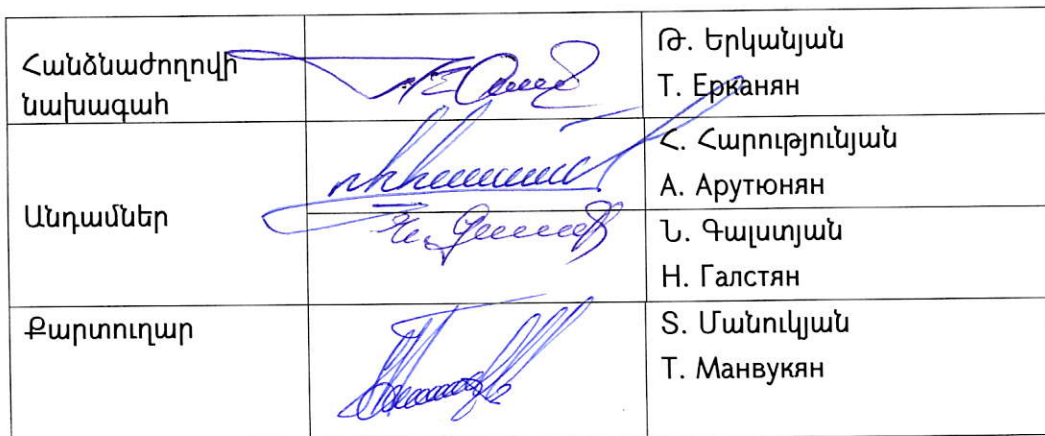 Հանձնաժողովի
նախագահ
Թ. Երկանյան
Т. Ерканян
Անդամներ
Հ. Հարությունյան
А. Арутюнян
Ն. Գալստյան
Н. Галстян
Քարտուղար
Տ. Մանուկյան
Т. Манвукян